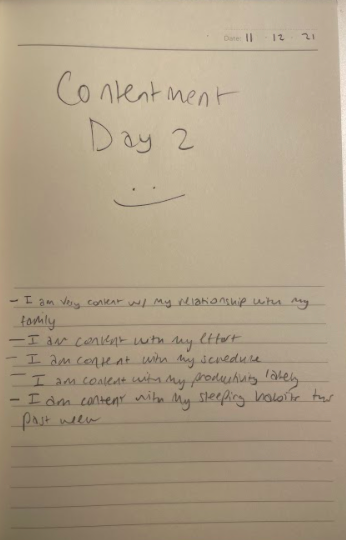 Date: 11 · 12 · 21
Contentment
Day 2
- I am very content w/ my relationship with my
family
- I am content with my effort
- I am content with my schedule
- I am content with my productivity lately
- I am content with my sleeping habits this
past week